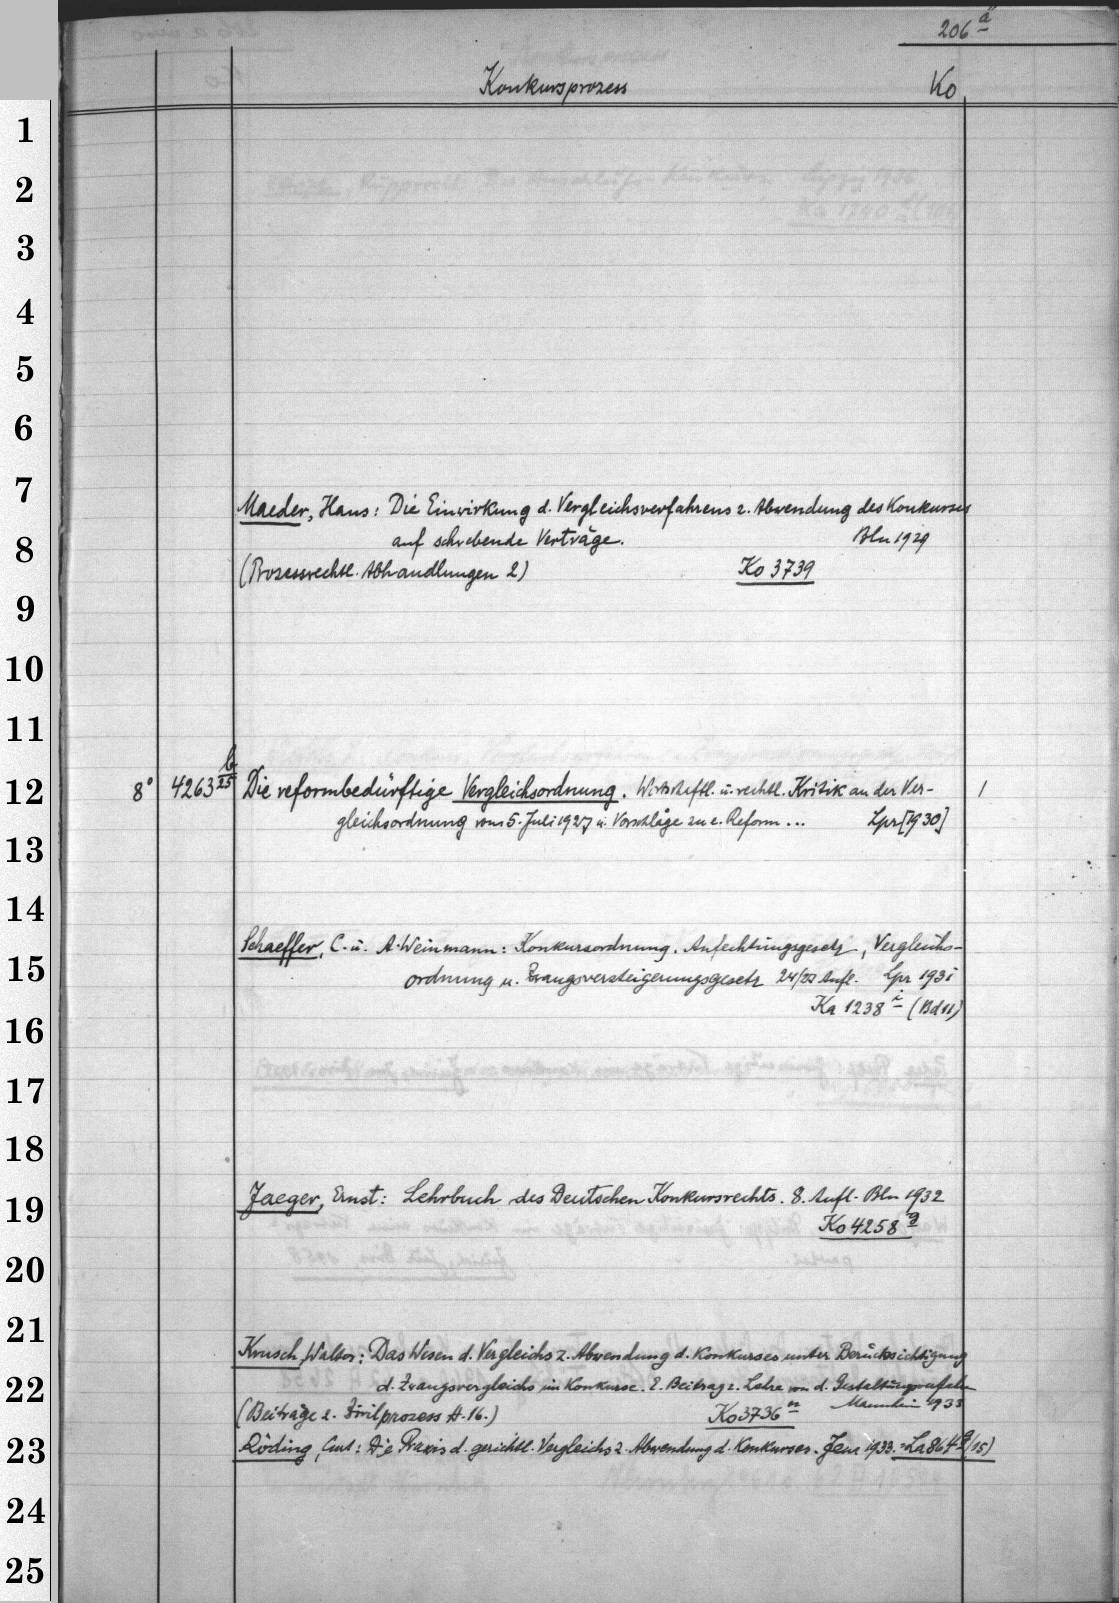 206 a
Konkursprozess Ko
1
2
3
4
5
6
7
Maeder, Hans: Die Einwirkung d. Vergleichsverfahrens z. Abwendung des Konkurses
8
auf schwebende Verträge. Bln 1929
(Prozessrechtl. Abhandlungen 2) Ko 3739
9
10
11
12
8° 4263 b/25 Die reformbedürftige Vergleichsordnung. Wirtschaftl. u. rechtl. Kritik an der Ver- 1
gleichsordnung vom 5. Juli 1927 u. Vorschläge zu e. Reform ... Lpz [1930]
13
14
Schaeffer, C. u. A. Weinmann: Konkursordnung, Anfechtungsgesetz, Vergleichs-
15
ordnung u. Zwangsversteigerungsgesetz Aufl. Lpz 1931
Ka 1238 i (Bd 11)
16
17
18
19
Jaeger, Ernst: Lehrbuch des Deutschen Konkursrechts. 8. Aufl. Bln 1932
Ko 4258 g
20
21
Krusch, Walter: Das Wesen d. Vergleichs z. Abwendung d. Konkurses unter Berücksichtigung
22
d. Zwangsvergleichs im Konkurse. E. Beitrag z. Lehre von d.
Mannheim 1933
(Beiträge z. Zivilprozess H. 16.) Ko 3736
23
Röding, Curt: Die Praxis d. gerichtl. Vergleichs z. Abwendung d. Konkurses. Jena 1933. = La 864 (15)
24
25